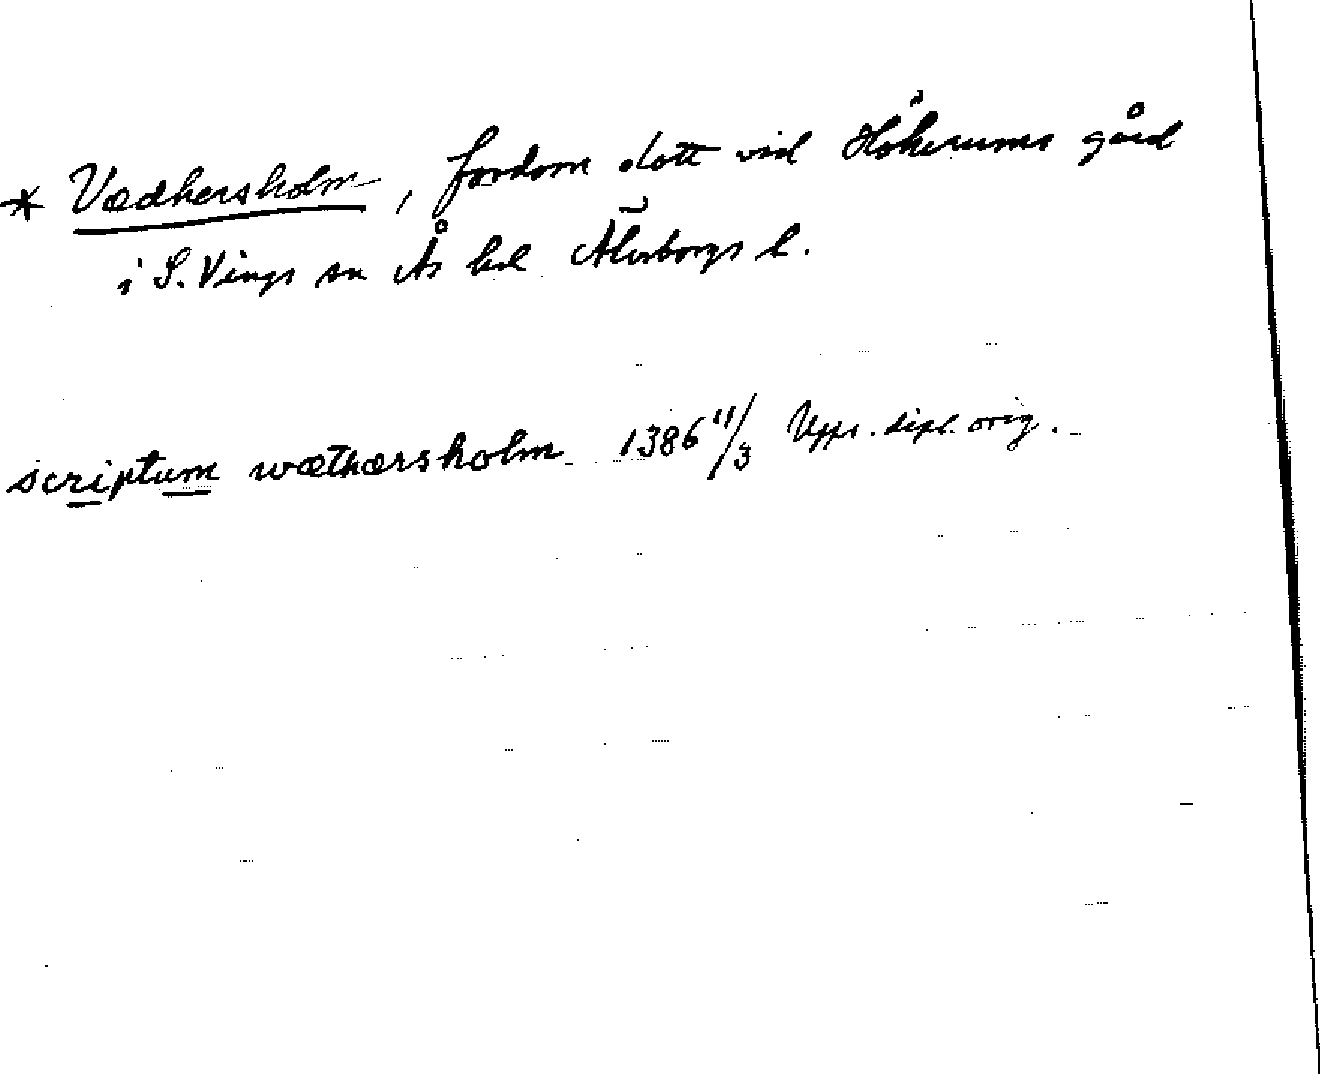 * Vædhersholm, fordom slott vid Hökerums gård
i S. Vings sn Ås hd Älvsborgs l.
scriptum wæthærsholm 1386 11/3 Upps. dipl. orig.